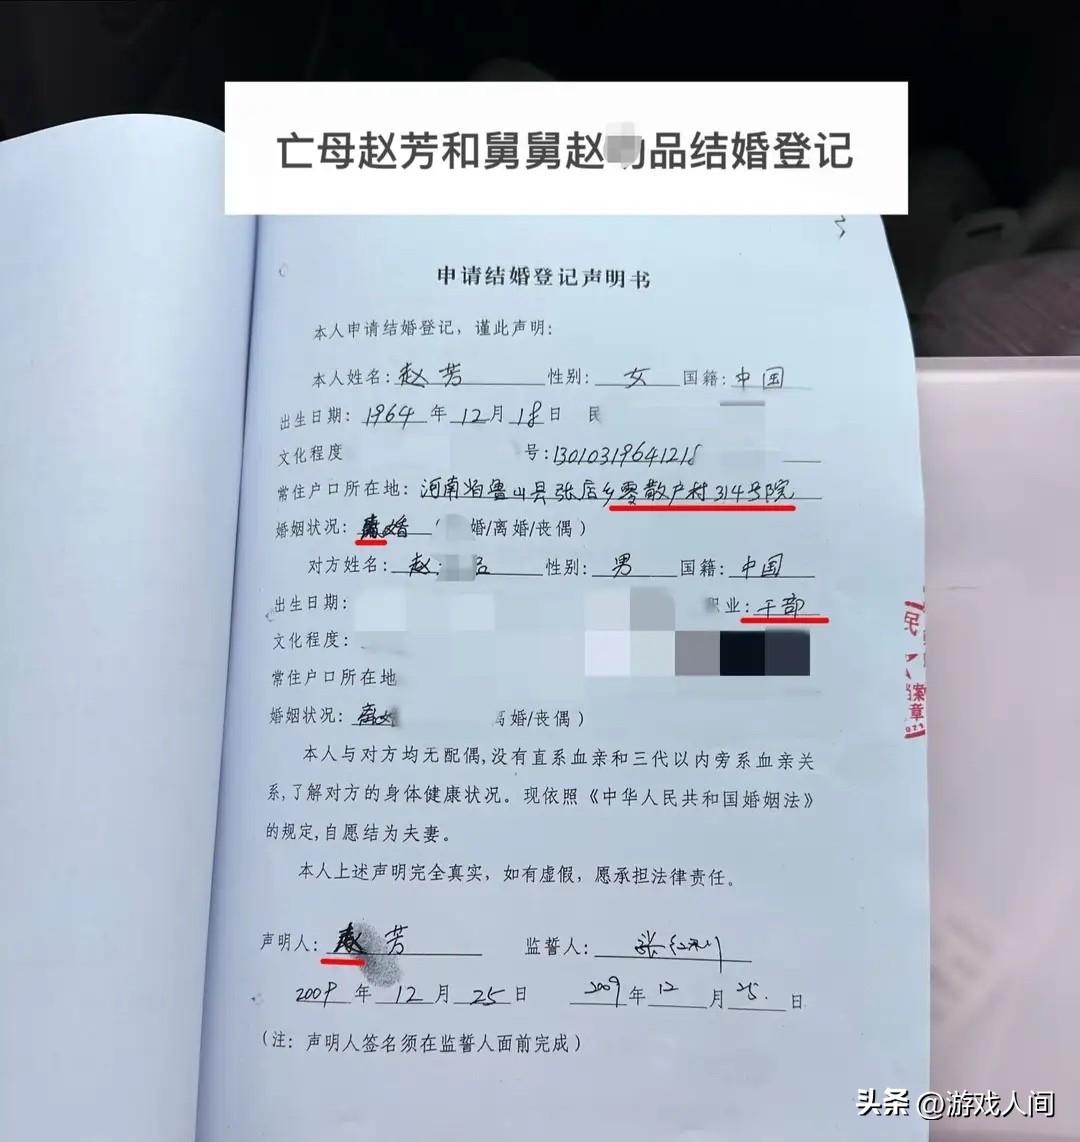 亡母赵芳和舅舅赵 品结婚登记
申请结婚登记声明书
本人申请结婚登记，谨此声明：
本人姓名：赵芳 性别：女 国籍：中国
出生日期：1964年12月18日 民
文化程度 号：13010319641218
常住户口所在地：河南省鲁山县张店乡零散户村314号院
婚姻状况：离婚（ 婚/离婚/丧偶）
对方姓名：赵 性别：男 国籍：中国
出生日期： 职业：干部
文化程度：
常住户口所在地
婚姻状况：离婚 离婚/丧偶）
本人与对方均无配偶，没有直系血亲和三代以内旁系血亲关
系，了解对方的身体健康状况。现依照《中华人民共和国婚姻法》
的规定，自愿结为夫妻。
本人上述声明完全真实，如有虚假，愿承担法律责任。
声明人：赵芳 监誓人：张
2009年12月25日 2009年12月25日
（注：声明人签名须在监誓人面前完成）
民
档案
章
头条 @游戏人间